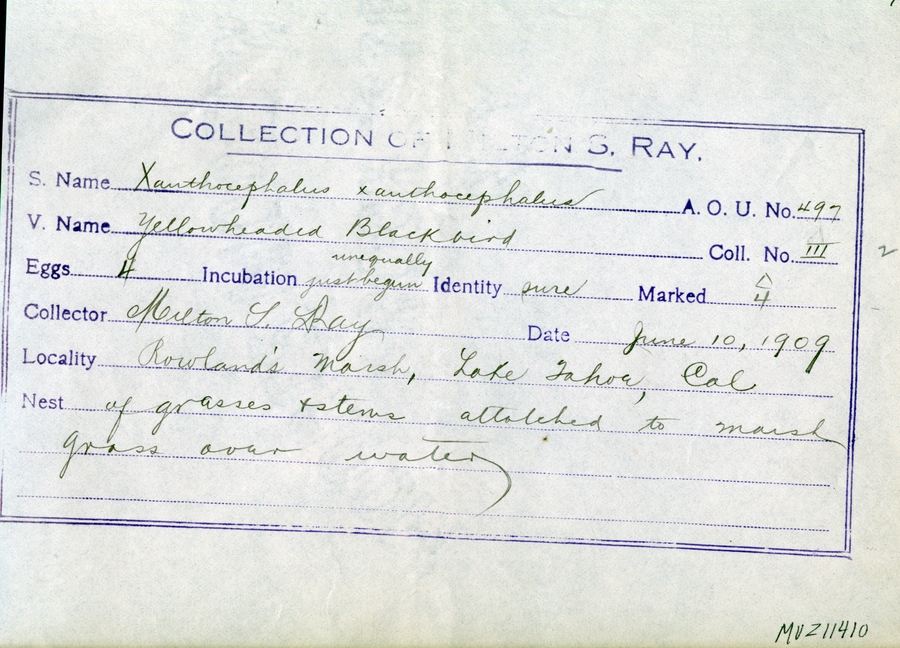 COLLECTION OF MILTON S. RAY.
S. Name Xanthocephalus xanthocephalus A. O. U. No. 497
V. Name Yellowheaded Blackbird Coll. No. III
2
unequally
Eggs 4 Incubation just begun Identity sure Marked 4
Collector Milton S. Ray Date June 10, 1909
Locality Rowland's Marsh, Lake Tahoe, Cal
Nest of grasses + stems attatched to marsh
grass over water
MVZ11410